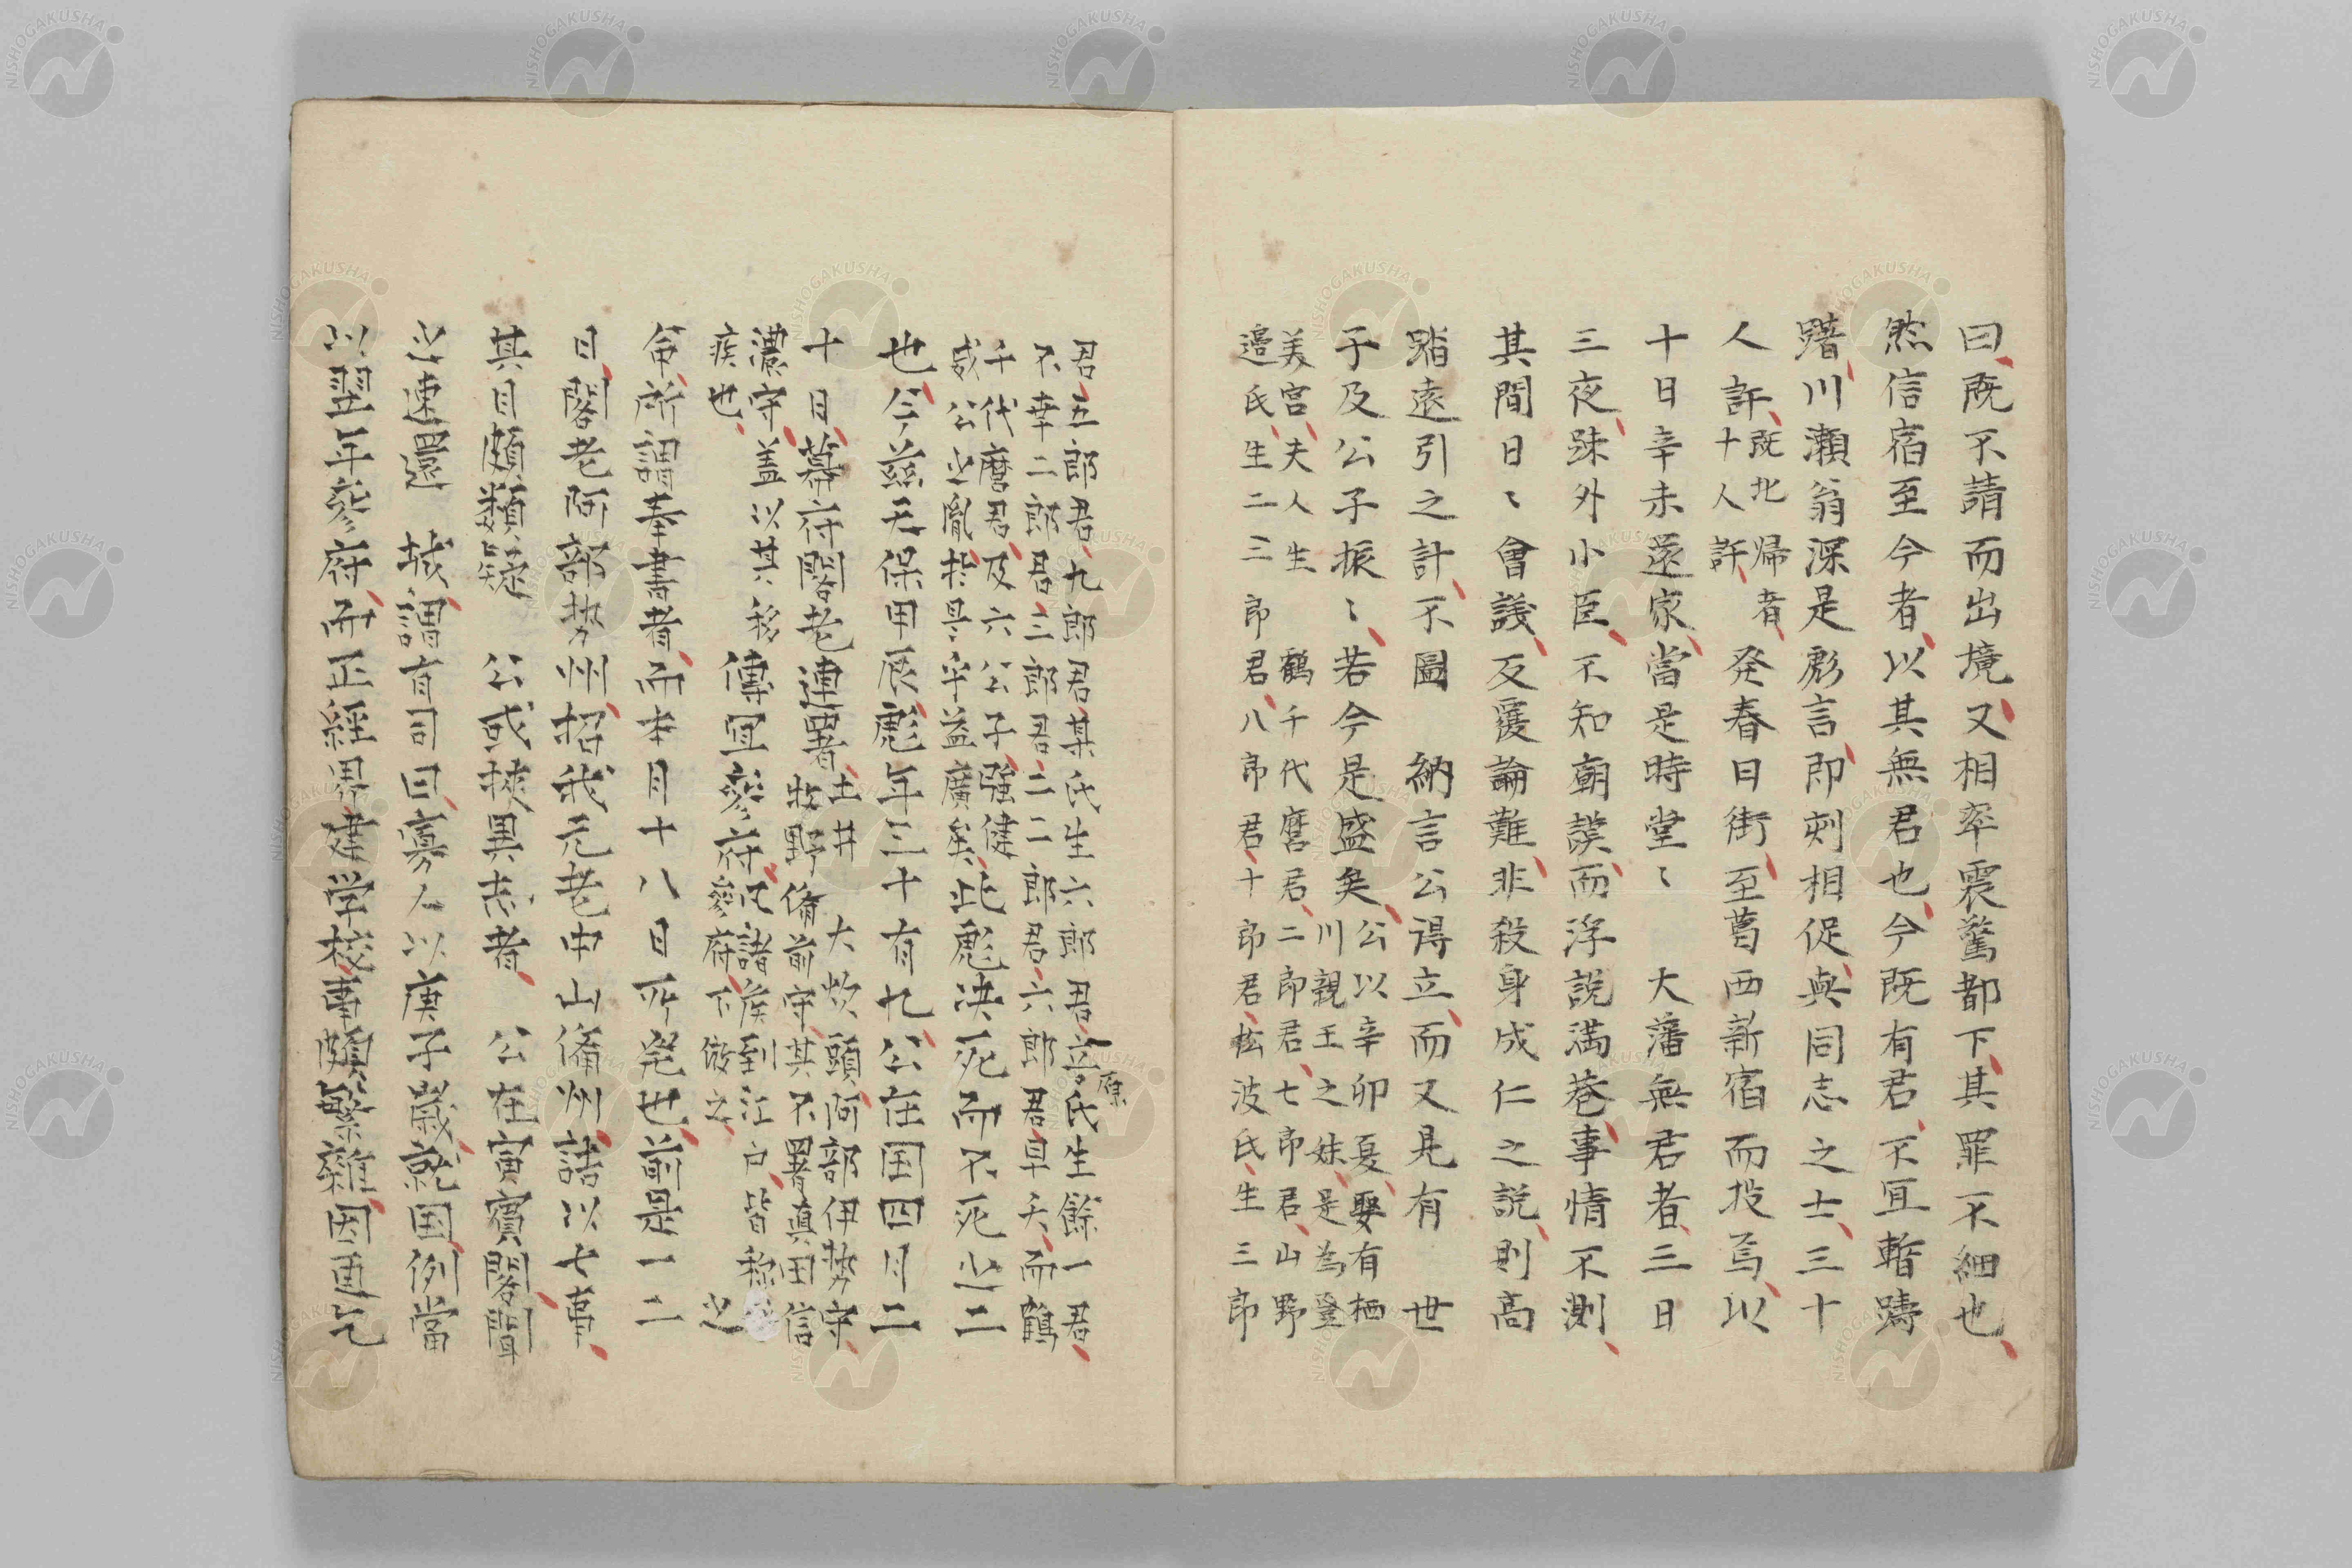 曰既不請而出境又相率震驚都下其罪不細也
然信宿至今者以其無君也今既有君不宜暫躊
躇川瀬翁深是彪言即刻相促與同志之士三十
人許既北帰者十人許発春日街至葛西新宿而投焉以
十日辛未還家當是時堂〻大藩無君者三日
三夜疎外小臣不知廟謨而浮説満巷事情不測
其間日〻會議反覆論難非殺身成仁之説則高
踏遠引之計不圖 納言公得立而又見有 世
子及公子振〻若今是盛矣公以辛卯夏娶有栖
川親王之妹是為登
美宮夫人生 鶴千代麿君二郎君七郎君山野
邉氏生二三郎君八郎君十郎君松波氏生三郎
君五郎君九郎君某氏生六郎君立原氏生餘一君
不幸二郎君三郎君二二郎君六郎君早夭而鶴
千代麿君及六公子強健
威公之胤於是乎益廣矣此彪決死而不死之二
也今茲天保甲辰彪年三十有九公在国四月二
十日幕府閣老連署土井大炊頭阿部伊勢守
牧野備前守其不署真田信
濃守蓋以其移
疾也傳宣參府凡諸侯到江戸皆称
參府下倣之之
命所謂奉書者而本月十八日所発也前是一二
日閣老阿部勢州招我元老中山備州語以七事
其目頗類疑 公或挾異志者 公在寅賓閣聞
之速還 城謂有司曰寡人以庚子歳就国例當
以翌年參府而正経界建学校事頗繁雑因更乞
NISHOGAKUSHA